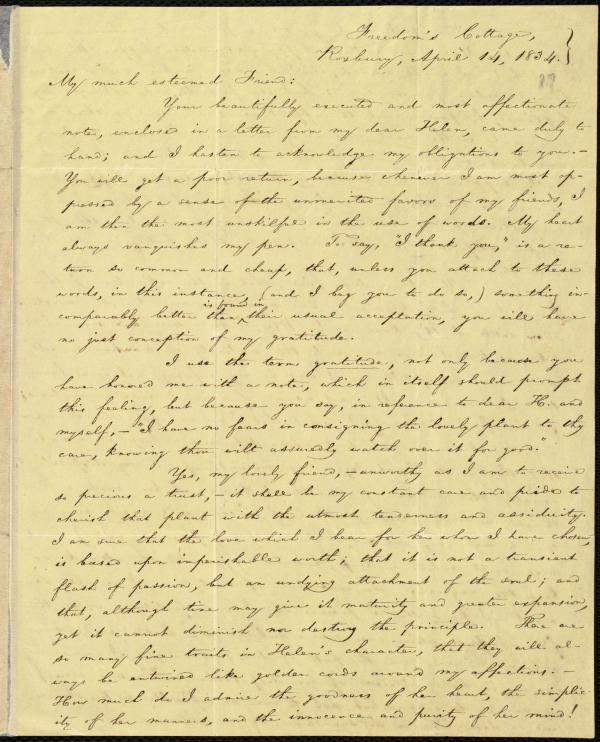 Freedom's Cottage,
Roxbury, April 14, 1834.
37
My much esteemed Friend:
Your beautifully executed and most affectionate
note, enclosed in a letter from my dear Helen, came duly to
hand; and I hasten to acknowledge my obligations to you.—
You will get a poor return, because whenever I am most op-
pressed by a sense of the unmerited favors of my friends, I
am then the most unskilful in the use of words. My heart
always vanquishes my pen. To say, "I thank you," is a re-
turn so common and cheap, that, unless you attach to these
words, in this instance, (and I beg you to do so,) something in-
is found in
comparably better than their usual acceptation, you will have
no just conception of my gratitude.
I use the term gratitude, not only because you
have honored me with a note, which in itself should prompt
this feeling, but because you say, in reference to dear H. and
myself,—"I have no fears in consigning the lovely plant to thy
care, knowing thou wilt assuredly watch over it for good."
Yes, my lovely friend,—unworthy as I am to receive
so precious a trust,—it shall be my constant care and pride to
cherish that plant with the utmost tenderness and assiduity.
I am sure that the love which I bear for her whom I have chosen,
is based upon imperishable worth; that it is not a transient
flash of passion, but an undying attachment of the soul; and
that, although time may give it maturity and greater expansion,
yet it cannot diminish nor destroy the principle. There are
so many fine traits in Helen's character, that they will al-
ways be entwined like golden cords around my affections.—
How much do I admire the goodness of her heart, the simplic-
ity of her manners, and the innocence and purity of her mind!